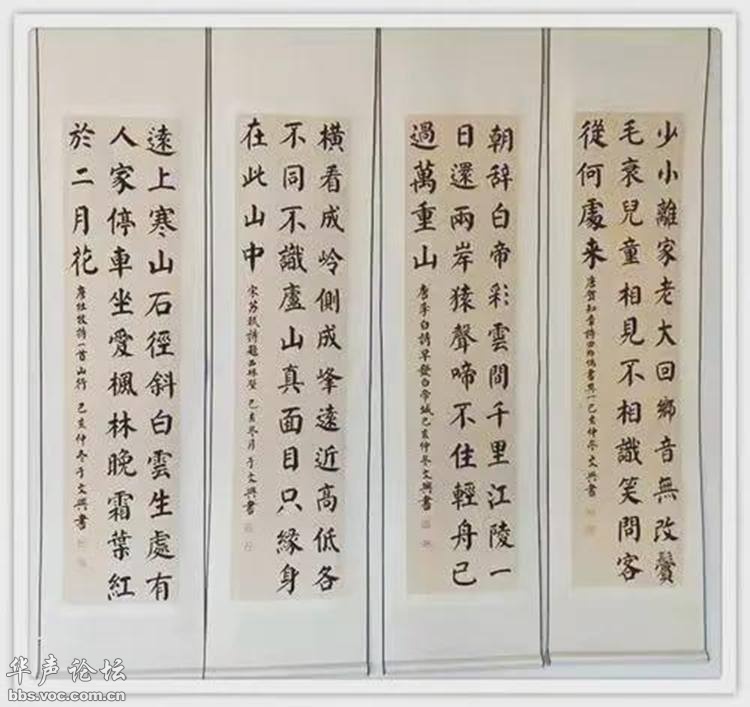 少小離家老大回鄉音無改鬢
毛衰兒童相見不相識笑問客
從何處来
唐賀知章詩回鄉偶書其一己亥仲冬文興書
朝辞白帝彩雲間千里江陵一
日還兩岸猿聲啼不住輕舟已
過萬重山
唐李白詩早發白帝城己亥仲冬文興書
橫看成岭側成峰遠近高低各
不同不識廬山真面目只緣身
在此山中
宋苏軾詩題西林壁 己亥冬月于文興書
遠上寒山石徑斜白雲生處有
人家停車坐愛楓林晚霜葉紅
於二月花
唐杜牧詩一首山行 己亥仲冬于文興書
华声论坛
bbs.voc.com.cn